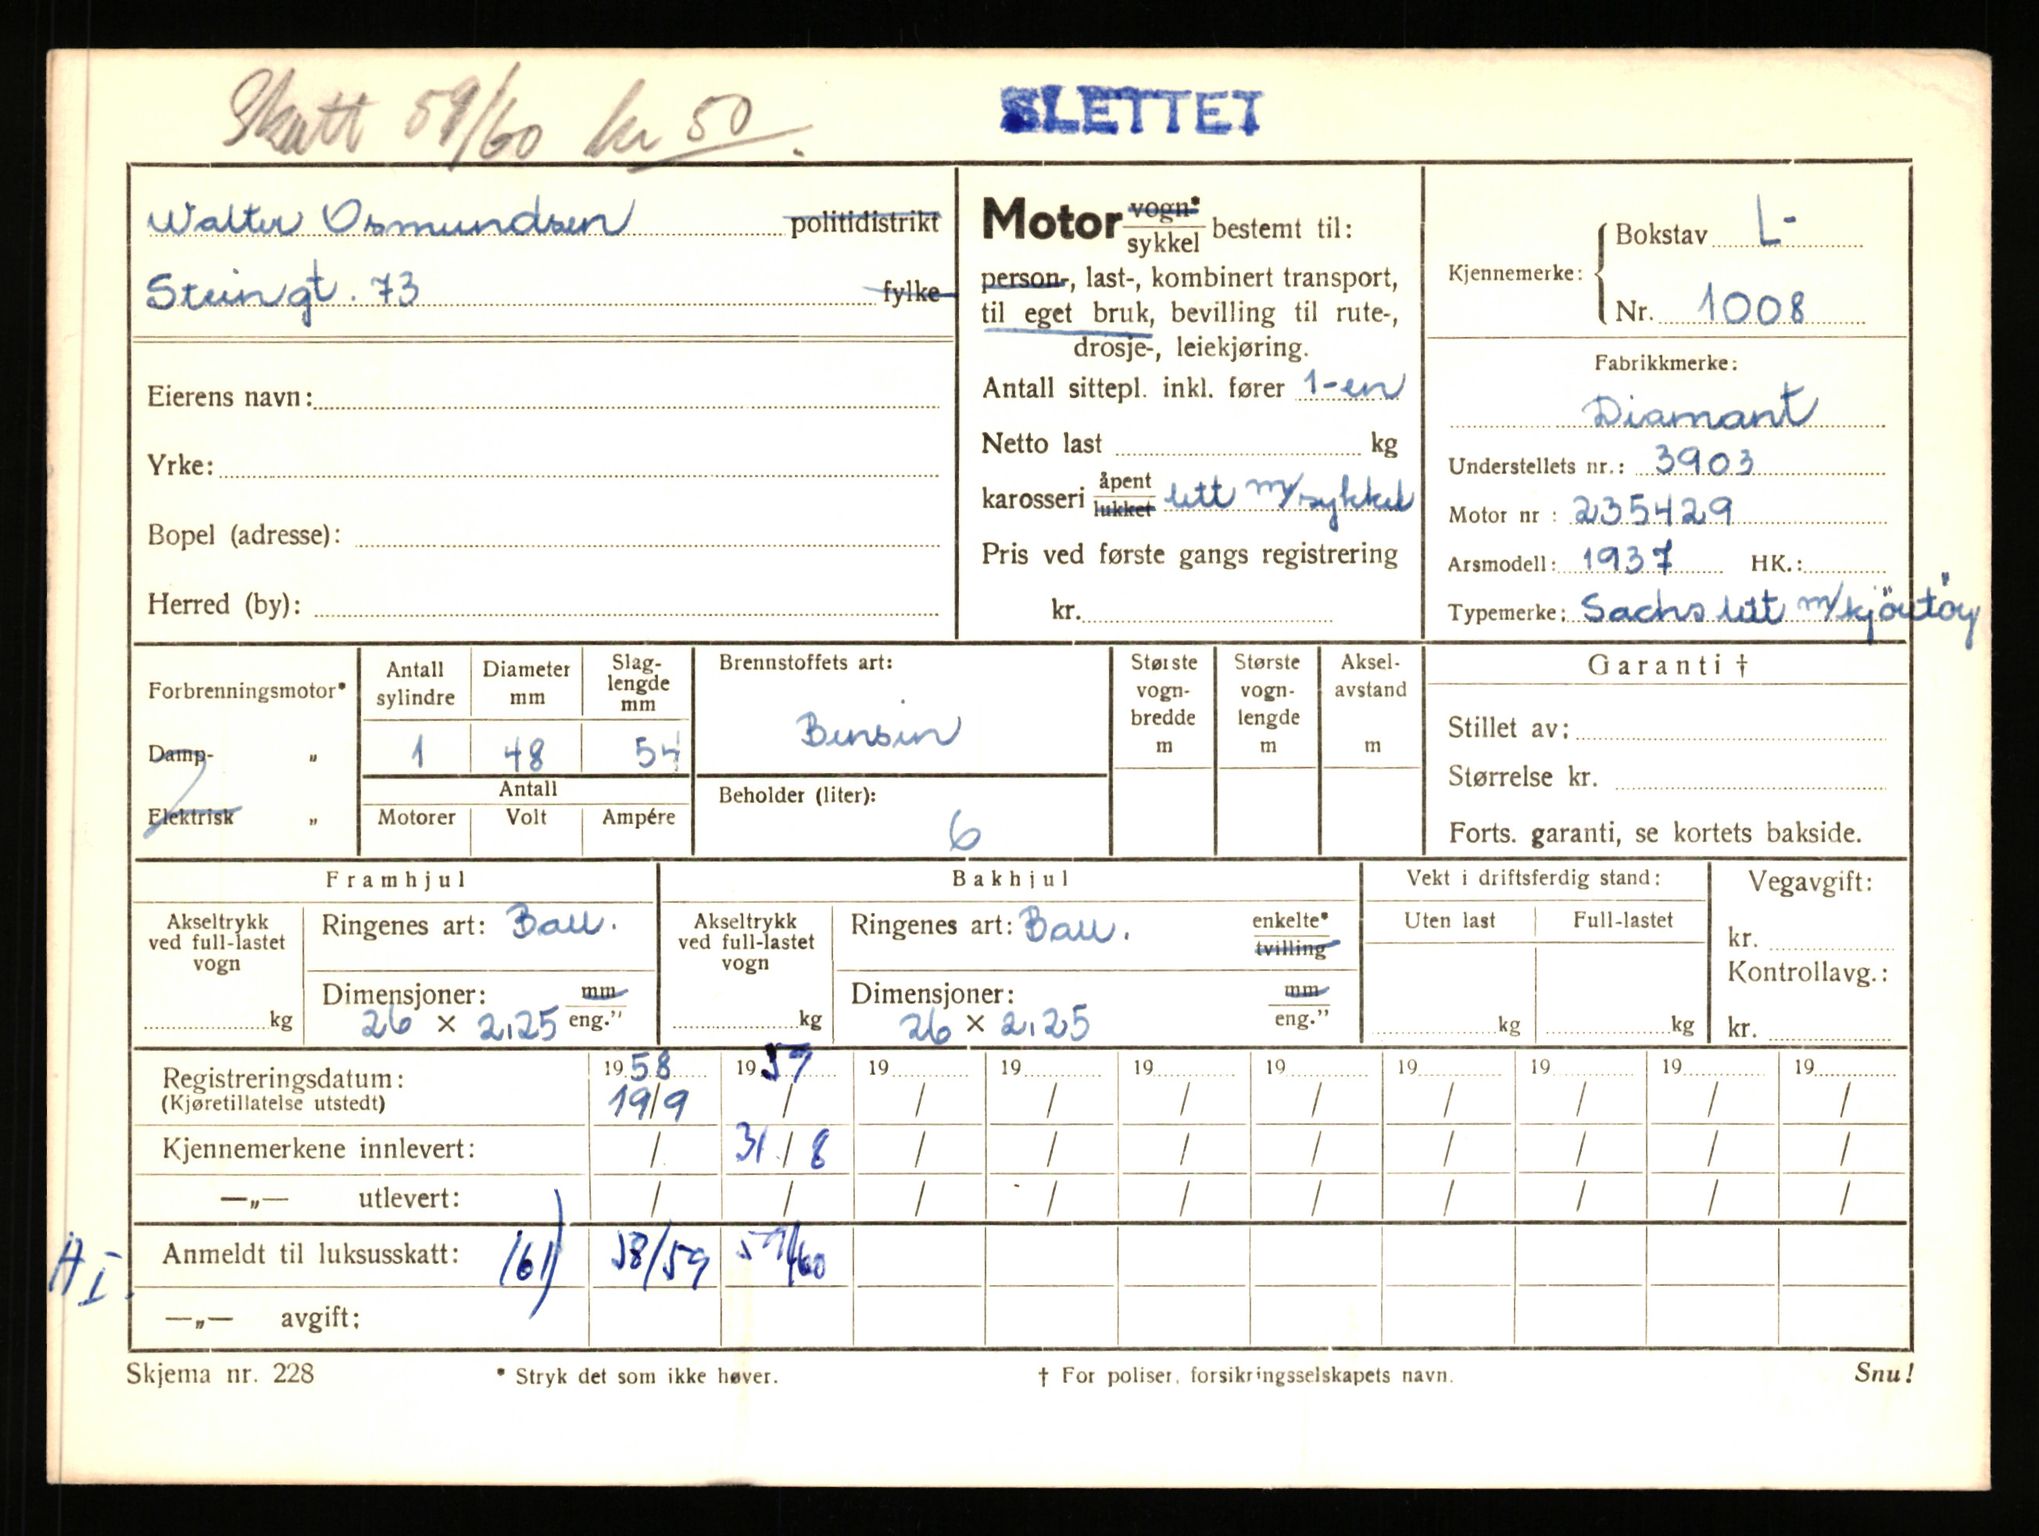 Skatt 59/60 kr 50.
SLETTET
Walter Osmundsen politidistrikt
Steingt. 73 fylke
Eierens navn:
Yrke:
Bopel (adresse):
Herred (by):
Motor vogn* / sykkel bestemt til:
person-, last-, kombinert transport,
til eget bruk, bevilling til rute-,
drosje-, leiekjøring.
Antall sittepl. inkl. fører 1-en
Netto last kg
karosseri åpent / lukket lett m/sykkel
Pris ved første gangs registrering
kr.
Kjennemerke: { Bokstav L-
Nr. 1008
Fabrikkmerke:
Diamant
Understellets nr.: 3903
Motor nr : 235429
Arsmodell: 1937 HK.:
Typemerke: Sachs lett m/kjöretöy
Forbrenningsmotor*
Damp- „
Elektrisk „
Antall sylindre Diameter mm Slag-lengde mm
1 48 54
Antall
Motorer Volt Ampére
Brennstoffets art:
Bensin
Beholder (liter):
6
Største vogn-bredde m
Største vogn-lengde m
Aksel-avstand m
Garanti †
Stillet av:
Størrelse kr.
Forts. garanti, se kortets bakside.
Framhjul
Akseltrykk ved full-lastet vogn
kg
Ringenes art: Ball.
Dimensjoner: mm
26 x 2,25 eng."
Bakhjul
Akseltrykk ved full-lastet vogn
kg
Ringenes art: Ball. enkelte*
tvilling
Dimensjoner: mm
26 x 2,25 eng."
Vekt i driftsferdig stand:
Uten last Full-lastet
kg kg
Vegavgift:
kr.
Kontrollavg.:
kr.
Registreringsdatum: 1958 1959 19 19 19 19 19 19 19 19
(Kjøretillatelse utstedt) 19/9 / / / / / / / / /
Kjennemerkene innlevert: / 31/8 / / / / / / / /
—„— utlevert: / / / / / / / / / /
H I. Anmeldt til luksusskatt: (61) 58/59 59/60
—„— avgift:
Skjema nr. 228 * Stryk det som ikke høver. † For poliser, forsikringsselskapets navn. Snu!